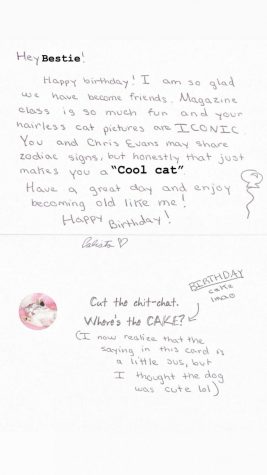 Hey Bestie!
Happy birthday! I am so glad
we have become friends. Magazine
class is so much fun and your
hairless cat pictures are ICONIC.
You and Chris Evans may share
zodiac signs, but honestly that just
makes you a "Cool cat".
Have a great day and enjoy
becoming old like me!
Happy Birthday!
BIRTHDAY
cake
lmao
Cut the chit-chat.
Where's the CAKE?
(I now realize that the
saying in this card is
a little sus, but
I thought the dog
was cute lol)